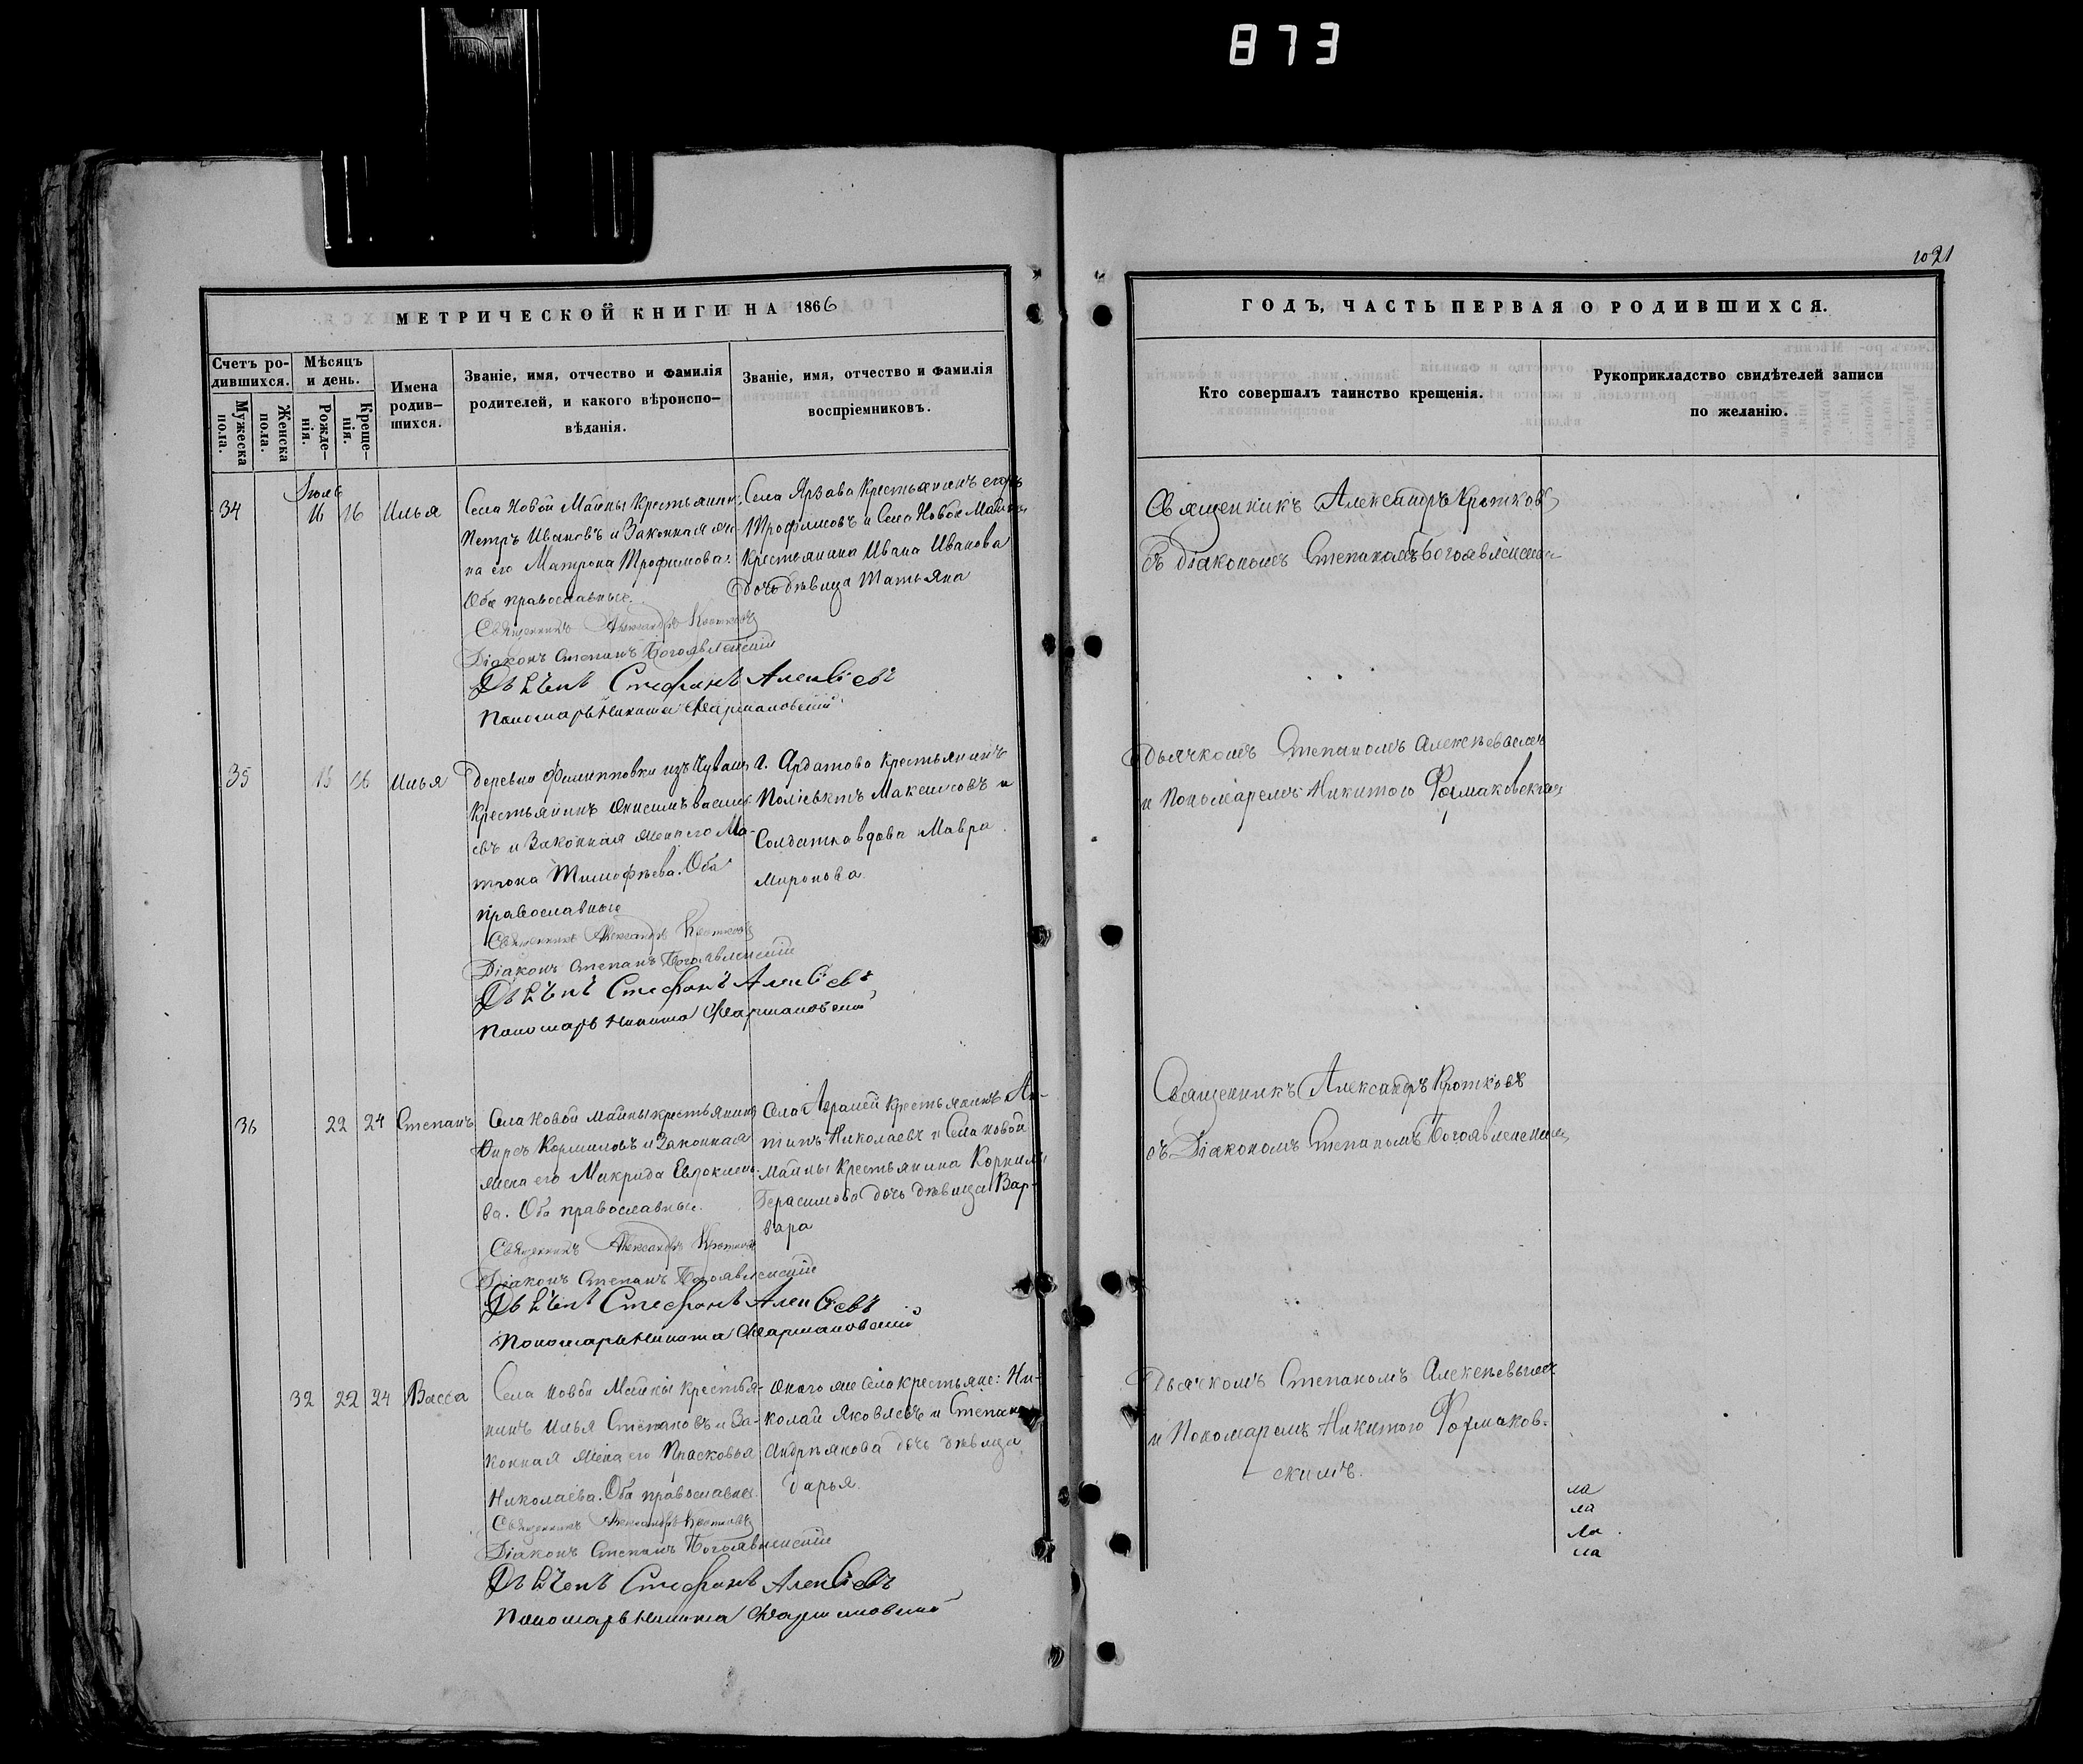 873
1021
МЕТРИЧЕСКОЙ КНИГИ НА 1866
Счетъ ро-
дившихся.
Мужеска
пола.
Женска
пола.
Мѣсяцъ
и день.
Рожде-
нія.
Креще-
нія.
Имена
родив-
шихся.
Званіе, имя, отчество и фамилія
родителей, и какого вѣроиспо-
вѣданія.
Званіе, имя, отчество и фамилія
воспріемниковъ.
34
Іюль
16 16 Илья
Села Новой Майны Крестьянинъ
Петръ Ивановъ и Законная же-
на его Матрона Трофимова.
Оба православные.
Села Крестьянинъ Егоръ
Трофимовъ и Села Новой Майны
Крестьянина Ивана Иванова
дочь дѣвица Татьяна
Священникъ Александръ Кротковъ
Діаконъ Степанъ Богоявленскій
Дьячекъ Стефанъ Алексіевъ
Пономарь Никита
35 15 16 Илья
Деревни Филипповки изъ Чувашъ
Крестьянинъ Онисимъ Василь-
евъ и Законная жена его Ма-
трона Тимофѣева. Оба
православные
г. Ардатова Крестьянинъ
Поліевктъ Максимовъ и
Солдатка вдова Мавра
Миронова.
Священникъ Александръ Кротковъ
Діаконъ Степанъ Богоявленскій
Дьячекъ Стефанъ Алексіевъ
Пономарь Никита
36 22 24 Степанъ
Села Новой Майны крестьянинъ
Корниловъ и Законная
жена его Макрида Евдокимо-
ва. Оба православные.
Села Крестьянинъ
Николаевъ и Села Новой
Майны Крестьянина Корнилы
Герасимова дочь дѣвица Вар-
вара
Священникъ Александръ Кротковъ
Діаконъ Степанъ Богоявленскій
Дьячекъ Стефанъ Алексіевъ
Пономарь Никита
32 22 24 Васса
Села Новой Майны Крестья-
нинъ Илья Степановъ и За-
конная жена его Прасковья
Николаева. Оба православные.
Онаго же Села крестьяне: Ни-
колай Яковлевъ и Степана
Андріянова дочь дѣвица
Дарья.
Священникъ Александръ Кротковъ
Діаконъ Степанъ Богоявленскій
Дьячекъ Стефанъ Алексіевъ
Пономарь Никита
ГОДЪ, ЧАСТЬ ПЕРВАЯ О РОДИВШИХСЯ.
Кто совершалъ таинство крещенія.
Рукоприкладство свидѣтелей записи
по желанію.
Священникъ Александръ Кротковъ
съ Діакономъ Степаномъ Богоявленским
Дьячкомъ Степаномъ Алексѣевымъ
и Пономаремъ Никитою
Священникъ Александръ Кротковъ
съ Діакономъ Степаномъ Богоявленским
Дьячкомъ Степаномъ Алексѣевымъ
и Пономаремъ Никитою
скимъ.